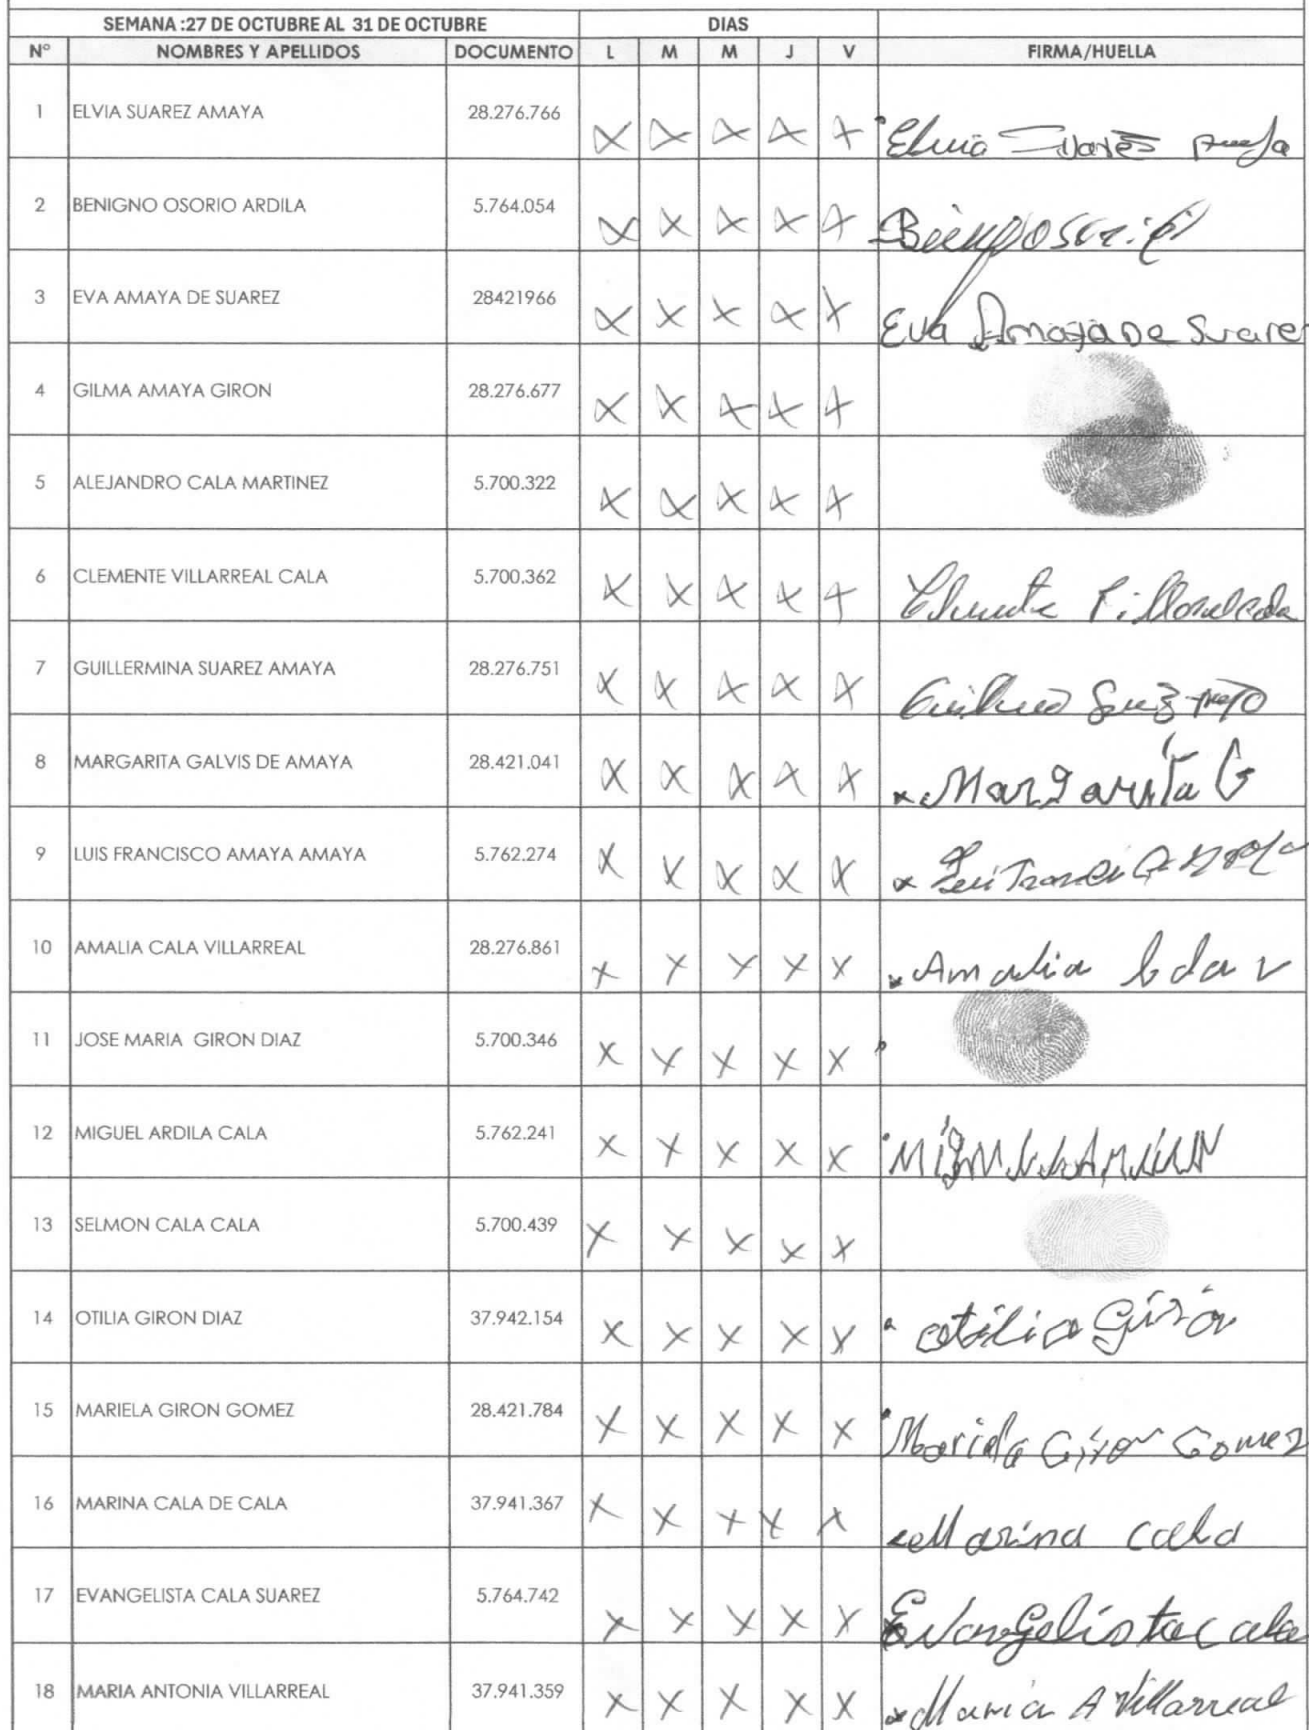 SEMANA :27 DE OCTUBRE AL 31 DE OCTUBRE DIAS
N° NOMBRES Y APELLIDOS DOCUMENTO L M M J V FIRMA/HUELLA
1 ELVIA SUAREZ AMAYA 28.276.766 X X X X X Elvia Suares
2 BENIGNO OSORIO ARDILA 5.764.054 X X X X X
3 EVA AMAYA DE SUAREZ 28421966 X X X X X Eva Amaya De Suare
4 GILMA AMAYA GIRON 28.276.677 X X X X X
5 ALEJANDRO CALA MARTINEZ 5.700.322 X X X X X
6 CLEMENTE VILLARREAL CALA 5.700.362 X X X X X
7 GUILLERMINA SUAREZ AMAYA 28.276.751 X X X X X
8 MARGARITA GALVIS DE AMAYA 28.421.041 X X X X X x Margarita G
9 LUIS FRANCISCO AMAYA AMAYA 5.762.274 X X X X X x
10 AMALIA CALA VILLARREAL 28.276.861 X X X X X Amalia
11 JOSE MARIA GIRON DIAZ 5.700.346 X X X X X
12 MIGUEL ARDILA CALA 5.762.241 X X X X X
13 SELMON CALA CALA 5.700.439 X X X X X
14 OTILIA GIRON DIAZ 37.942.154 X X X X X otilia Girón
15 MARIELA GIRON GOMEZ 28.421.784 X X X X X Mariela Giron Gomez
16 MARINA CALA DE CALA 37.941.367 X X X X X Marina cala
17 EVANGELISTA CALA SUAREZ 5.764.742 X X X X X Evangelista Cala
18 MARIA ANTONIA VILLARREAL 37.941.359 X X X X X x Maria A Villarreal